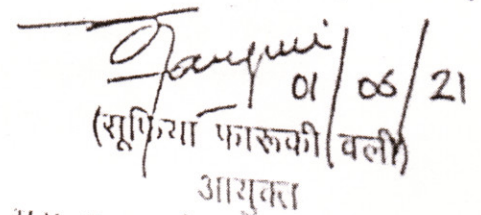 01/06/21
(सूफिया फारूकी वली)
आयुक्त